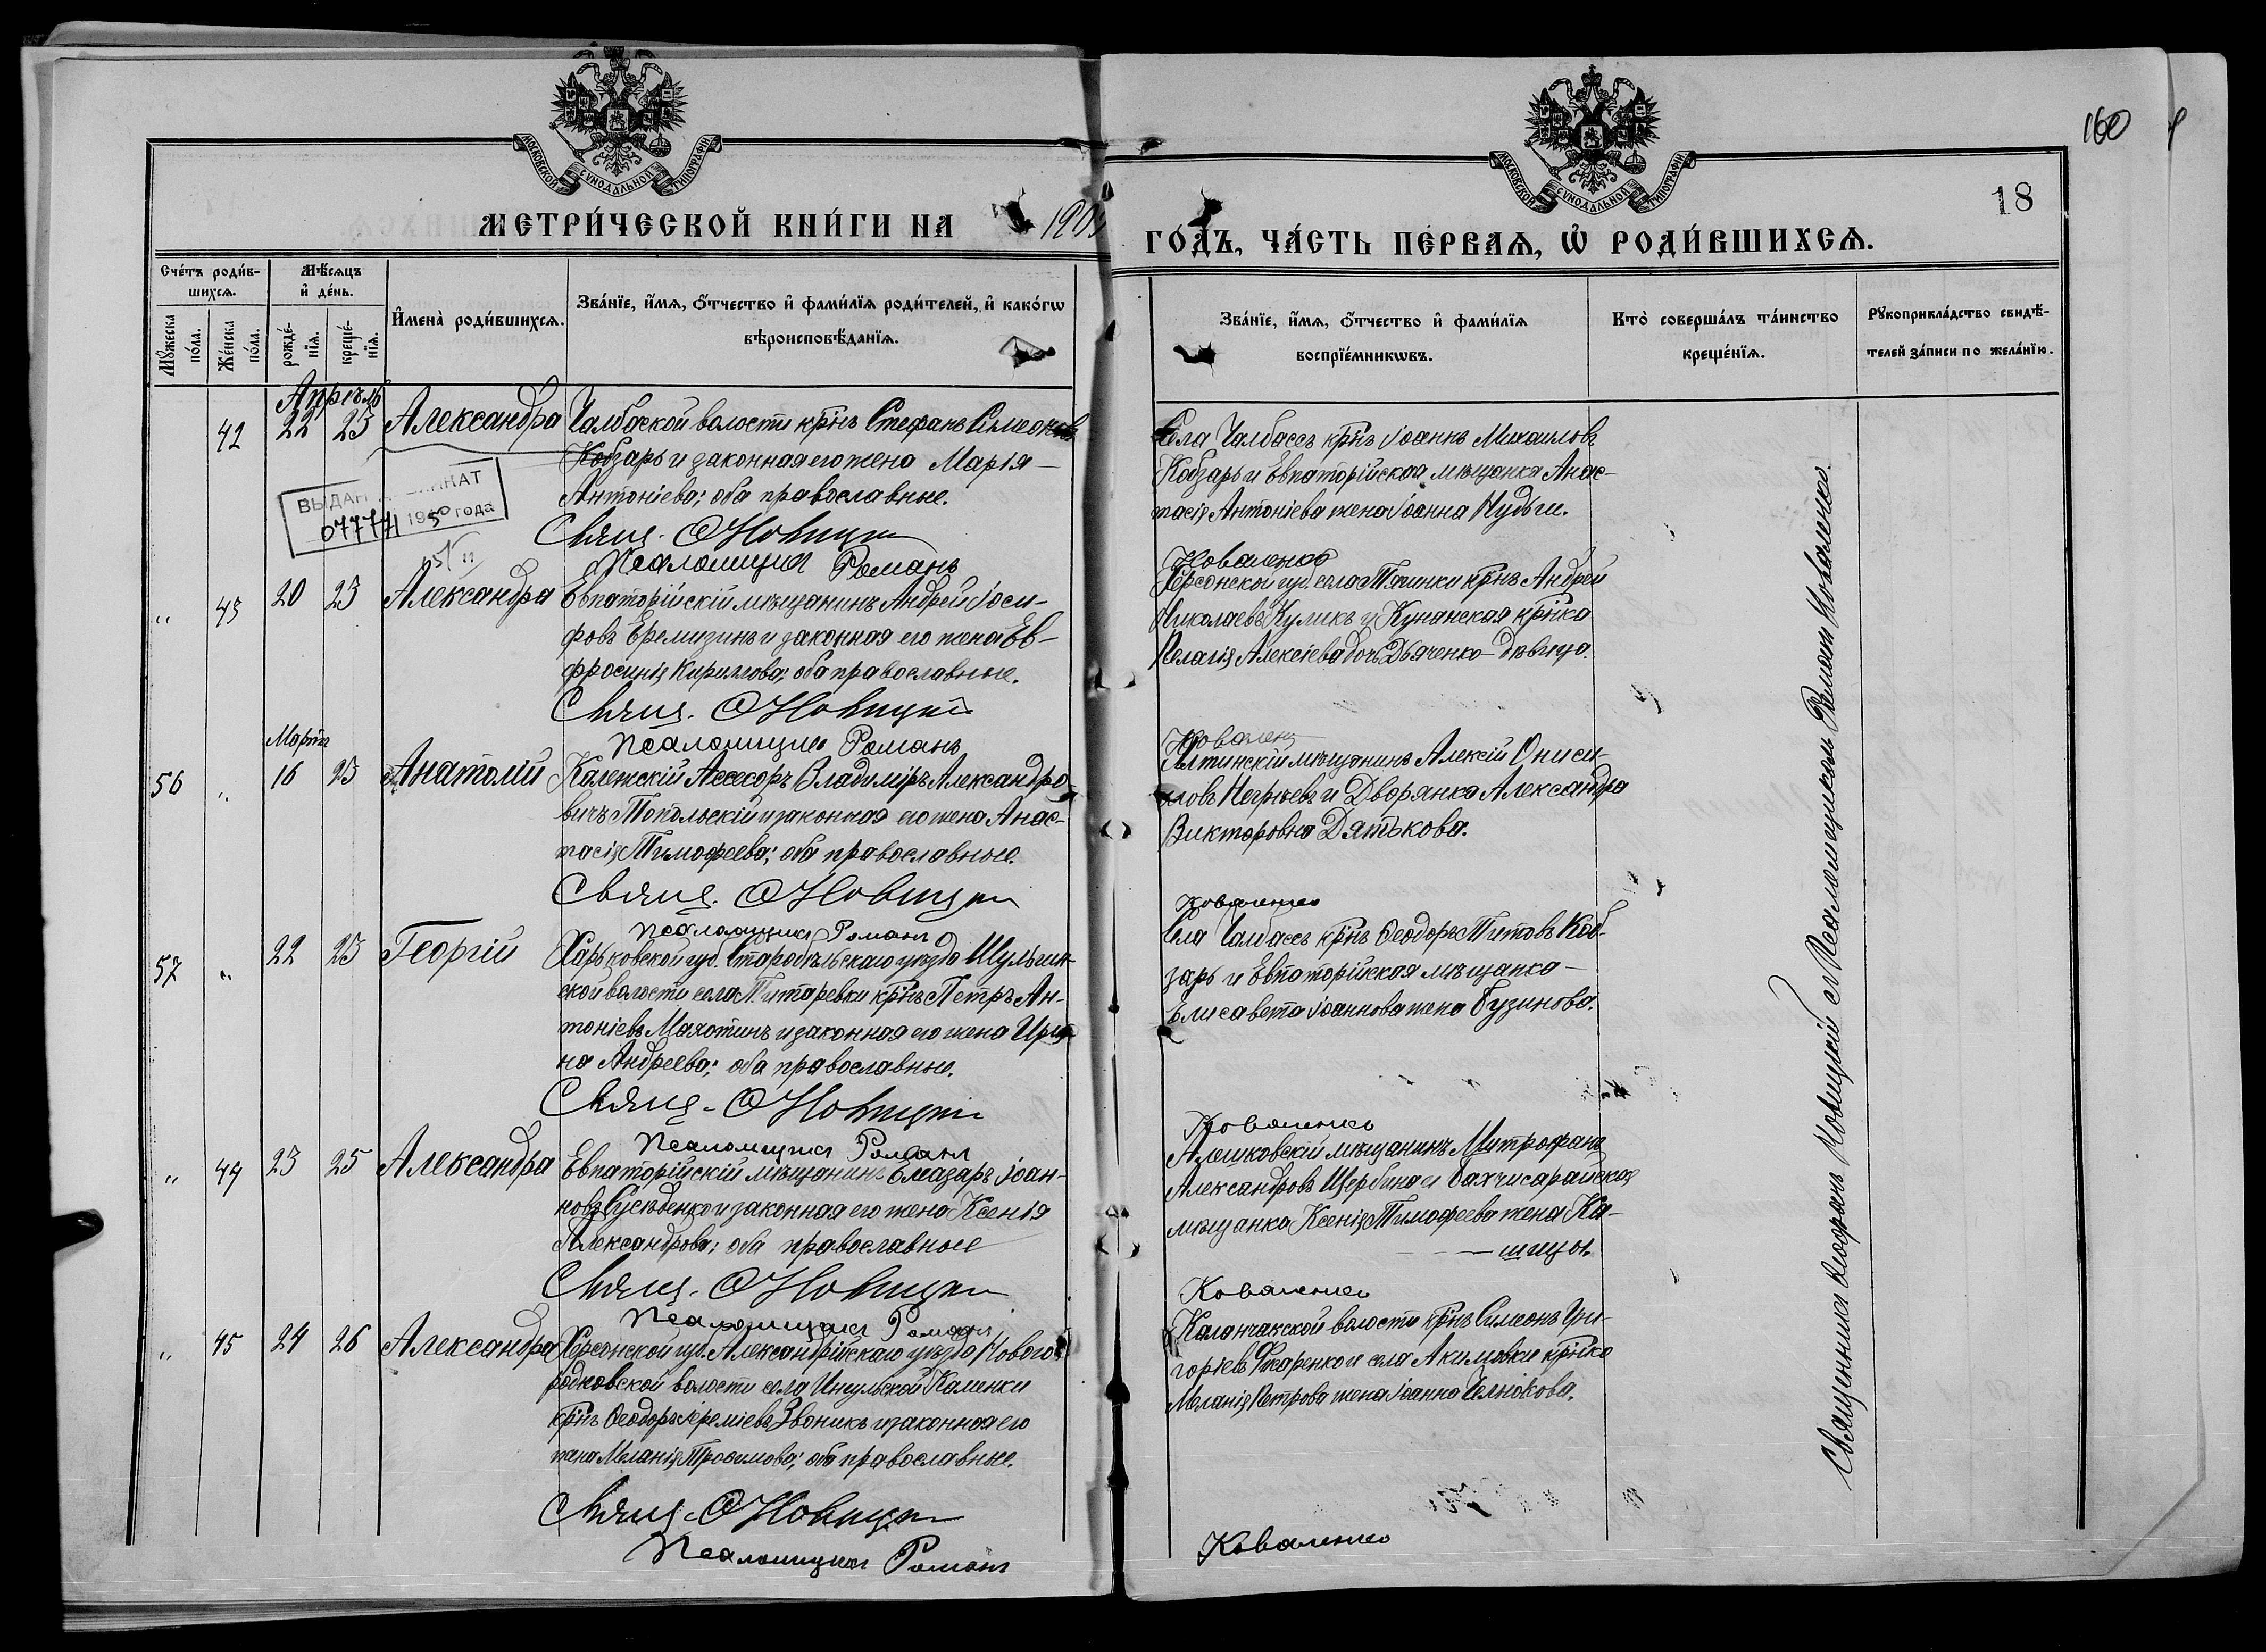 160
18
МОСКОВСКОЙ СѴНОДАЛЬНОЙ ТИПОГРАФІИ
МОСКОВСКОЙ СѴНОДАЛЬНОЙ ТИПОГРАФІИ
МЕТРИ́ЧЕСКОЙ КНИ́ГИ НА
ГО́ДЪ, ЧА́СТЬ ПЕ́РВАѦ, Ѡ҆ РОДИ́ВШИХСѦ.
Сче́тъ роди́в-
шихсѧ.
Мꙋ́жеска по́ла.
Же́нска по́ла.
Мѣ́сѧцъ
и҆ де́нь.
рожде́-нїѧ.
креще́-нїѧ.
И҆мена̀ роди́вшихсѧ.
Зва́нїе, и҆́мѧ, ѻ҆́тчество и҆ фами́лїѧ роди́телей, и҆ како́гѡ
вѣроисповѣ́данїѧ.
Зва́нїе, и҆́мѧ, ѻ҆́тчество и҆ фами́лїѧ
воспрїе́мникѡвъ.
Кто̀ соверша́лъ та́инство
креще́нїѧ.
Рꙋкоприкла́дство свидѣ́-
телей за́писи по жела́нїю.
Апрѣль
42 22 23 Александра Чалбаской волости крнъ Стефанъ Симеоновъ
Кобзарь и законная его жена Марія
Антоніева; оба православные.
Свящ. ѲНовицкій
Псаломщикъ Романъ
Села Чалбасъ крнъ Іоаннъ Михаиловъ
Кобзарь и Евпаторійская мѣщанка Анас-
тасія Антоніева жена Іоанна Нудьги.
Коваленко
ВЫДАН
07771 1950 года
" 43 20 23 Александра Евпаторійскій мѣщанинъ Андрей Іоси-
фовъ Еремизинъ и законная его жена Ев-
фросинія Кириллова; оба православные.
Свящ. ѲНовицкій
Псаломщикъ Романъ
Херсонской губ. села Тягинки крнъ Андрей
Николаевъ Куликъ и Кунанская крнка
Пелагія Алексіева дочь Дьяченко девица.
Коваленко
Мартъ
56 " 16 23 Анатолій Колежскій Ассесоръ Владиміръ Александро
вичъ Топольскій и законная его жена Анас-
тасія Тимофеева; оба православные.
Свящ. ѲНовицкій
Псаломщикъ Романъ
Ялтинскій мѣщанинъ Алексій Ониси-
мовъ Негрѣевъ и Дворянка Александра
Викторовна Дятькова.
Коваленко
57 " 22 23 Георгій Харьковской губ. Старобѣльскаго уѣзда Шульгин-
ской волости села Титаревки крнъ Петръ Ан-
тоніевъ Махотинъ и законная его жена Ири-
на Андреева; оба православные.
Свящ. ѲНовицкій
Псаломщикъ Романъ
Села Чалбасъ крнъ Ѳеодоръ Титовъ Коб-
зарь и Евпаторійская мѣщанка
Елисавета Іоаннова жена Бузинова.
Коваленко
" 44 23 25 Александра Евпаторійскій мѣщанинъ Елазаръ Іоан-
новъ Сусѣденко и законная его жена Ксенія
Александрова; оба православные
Свящ. ѲНовицкій
Псаломщикъ Романъ
Алешковскій мѣщанинъ Митрофанъ
Александровъ Щербина и Бахчисарайская
мѣщанка Ксенія Тимофеева жена Ка-
шицы.
Коваленко
" 45 24 26 Александра Херсонской губ. Александрійскаго уѣзда Нового
родковской волости села Ингульской Каменки
крнъ Ѳеодоръ Іереміевъ Звоникъ и законная его
жена Меланія Трофимова; оба православные.
Свящ. ѲНовицкій
Псаломщикъ Романъ
Каланчакской волости крнъ Симеонъ Гри-
горіевъ и села Акимовки крнка
Меланія Петрова жена Іоанна Челнокова.
Коваленко
Священникъ Ѳеофанъ Новицкій съ Псаломщикомъ Романомъ Коваленко.